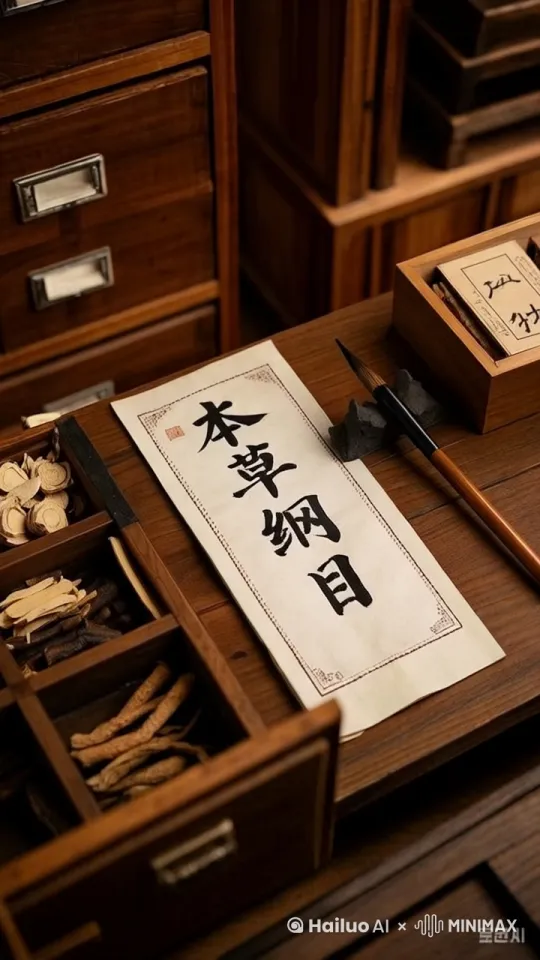 本草纲目
Hailuo AI × MINIMAX